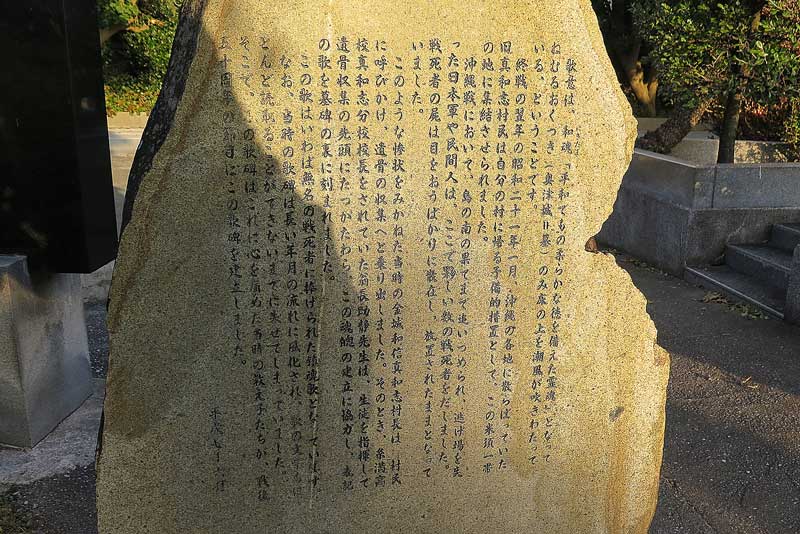 歌意は、和魂「平和でもの柔らかな徳を備えた霊魂」となって
ねむるおくつき(奥津城=墓)のみ庭の上を潮風が吹きわたって
いる、ということです。
終戦の翌年の昭和二十一年一月、沖縄の各地に散らばっていた
旧真和志村民は自分の村に帰る予備的措置として、この米須一帯
の地に集結させられました。
沖縄戦において、島の南の果てまで追いつめられ、逃げ場を失
った日本軍や民間人は、ここで夥しい数の戦死者をだしました。
戦死者の屍は目をおうばかりに散在し、放置されたままとなって
いました。
このような惨状をみかねた当時の金城和信真和志村長は、村民
に呼びかけ、遺骨の収集へと乗り出しました。そのとき、糸満高
校真和志分校校長をされていた翁長助静先生は、生徒を指揮して
遺骨収集の先頭にたつかたわら、この魂魄の建立に協力し、表記
の歌を墓碑の裏に刻まれました。
この歌はいわば無名の戦死者に捧げられた鎮魂歌となっています
なお、当時の歌碑は長い年月の流れに風化され、歌の文字もほ
とんど読取ることができないまでに朱せてしまっていました。
そこで、この歌碑はこれに心を痛めた当時の教え子たちが、戦後
五十周年の節目にこの歌碑を建立しました。
平成七年六月